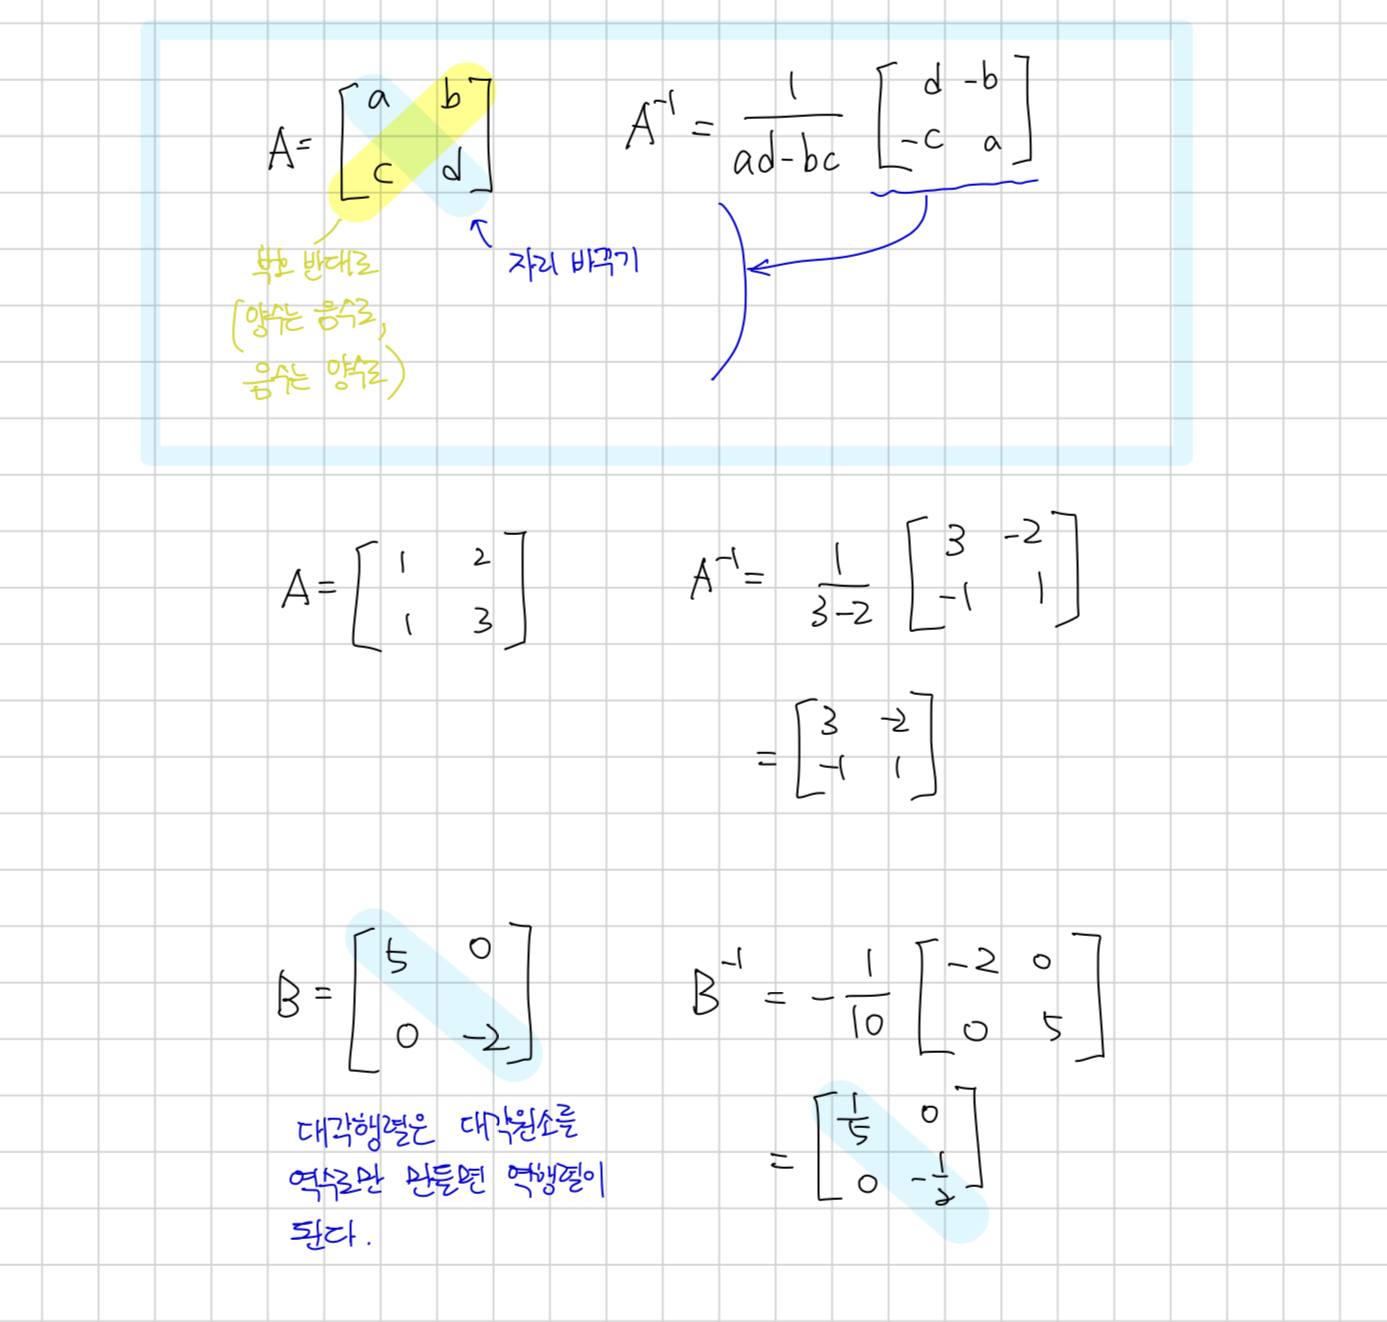 A= [ a b
c d ]
A⁻¹ = 1/(ad-bc) [ d -b
-c a ]
부호 반대로
(양수는 음수로,
음수는 양수로)
자리 바꾸기
A= [ 1 2
1 3 ]
A⁻¹= 1/(3-2) [ 3 -2
-1 1 ]
= [ 3 -2
-1 1 ]
B= [ 5 0
0 -2 ]
B⁻¹ = -1/10 [ -2 0
0 5 ]
= [ 1/5 0
0 -1/2 ]
대각행렬은 대각원소를
역수로만 만들면 역행렬이
된다.